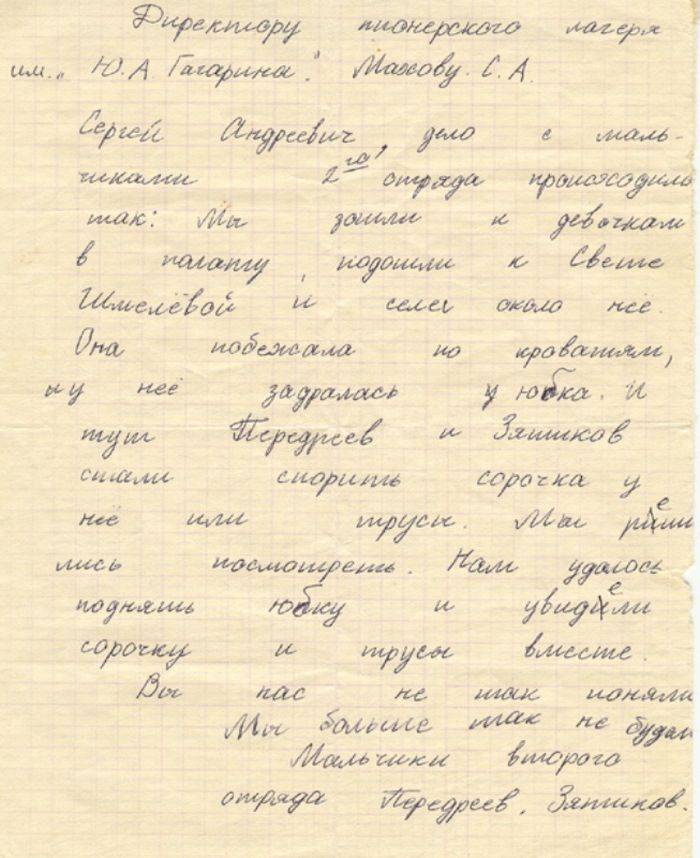 Директору пионерского лагеря
им. „Ю.А. Гагарина". Махову. С.А.
Сергей Андреевич, дело с маль-
чиками 2го отряда происходило
так: Мы зашли к девочкам
в палату, подошли к Свете
Шмелёвой и селеи около неё.
Она побежала по кроватям,
и у неё задралась юбка. И
тут Передреев и Зятиков
стали спорить сорочка у
неё или трусы. Мы реши
лись посмотреть. Нам удалось
поднять юбку и увидели
сорочку и трусы вместе.
Вы нас не так поняли
Мы больше так не будем
Мальчики второго
отряда Передреев, Зятиков.